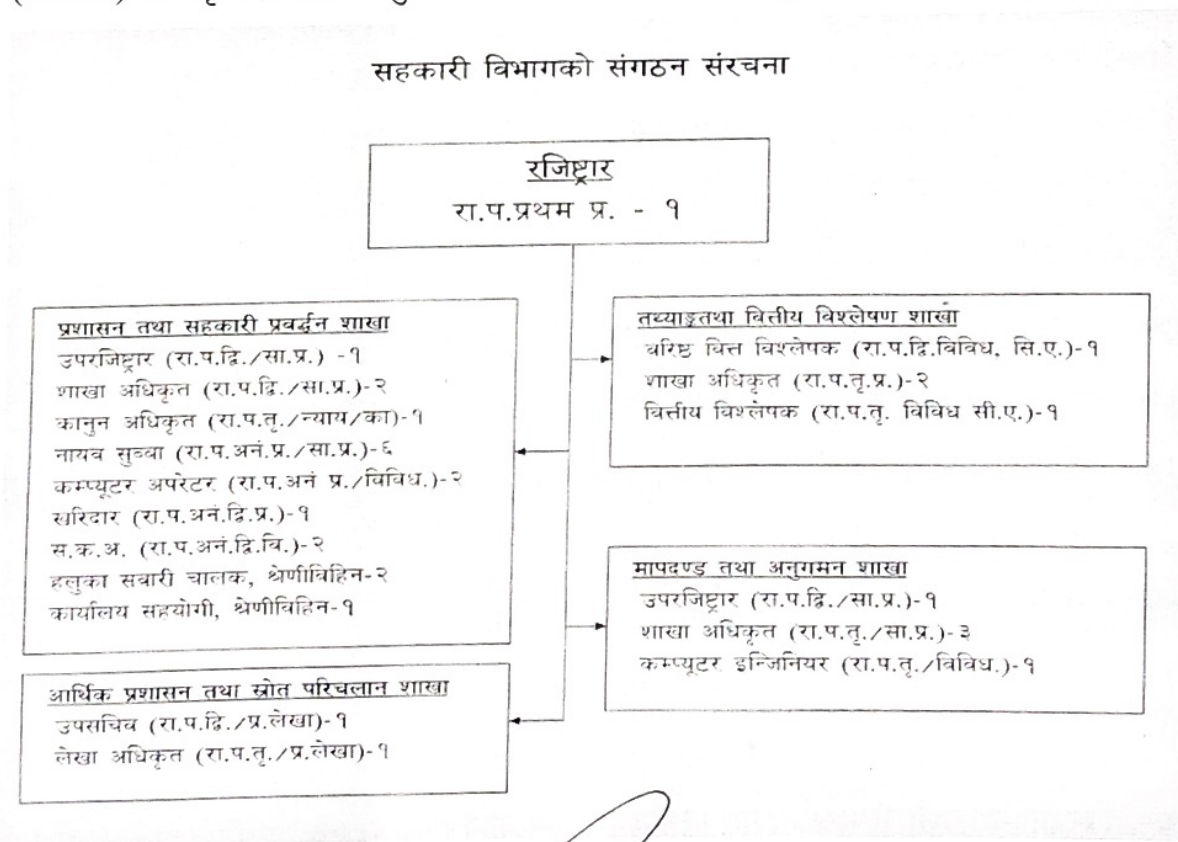 सहकारी विभागको संगठन संरचना
रजिष्ट्रार
रा.प.प्रथम प्र. - १
प्रशासन तथा सहकारी प्रवर्द्धन शाखा
उपरजिष्ट्रार (रा.प.द्वि./सा.प्र.) -१
शाखा अधिकृत (रा.प.द्वि./सा.प्र.)-२
कानुन अधिकृत (रा.प.तृ./न्याय/का)-१
नायव सुब्बा (रा.प.अनं.प्र./सा.प्र.)-६
कम्प्यूटर अपरेटर (रा.प.अनं प्र./विविध.)-२
खरिदार (रा.प.अनं.द्वि.प्र.)-१
स.क.अ. (रा.प.अनं.द्वि.वि.)-२
हलुका सवारी चालक, श्रेणीविहिन-२
कार्यालय सहयोगी, श्रेणीविहिन-१
आर्थिक प्रशासन तथा स्रोत परिचलान शाखा
उपसचिव (रा.प.द्वि./प्र.लेखा)-१
लेखा अधिकृत (रा.प.तृ./प्र.लेखा)-१
तथ्याङ्कतथा वित्तीय विश्लेषण शाखा
वरिष्ट वित्त विश्लेषक (रा.प.द्वि.विविध, सि.ए.)-१
शाखा अधिकृत (रा.प.तृ.प्र.)-२
वित्तीय विश्लेषक (रा.प.तृ. विविध सी.ए.)-१
मापदण्ड तथा अनुगमन शाखा
उपरजिष्ट्रार (रा.प.द्वि./सा.प्र.)-१
शाखा अधिकृत (रा.प.तृ./सा.प्र.)-३
कम्प्यूटर इन्जिनियर (रा.प.तृ./विविध.)-१